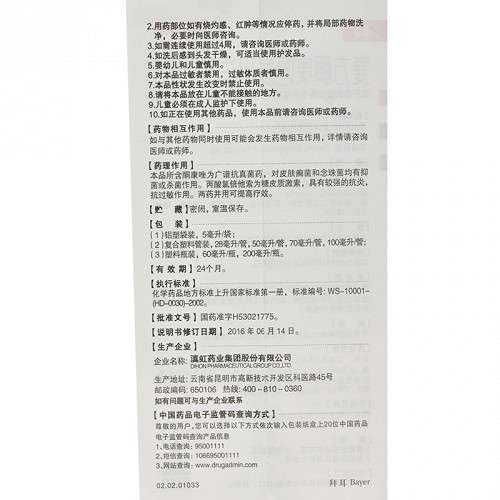 2.用药部位如有烧灼感、红肿等情况应停药，并将局部药物洗
净，必要时向医师咨询。
3.如需连续使用超过4周，请咨询医师或药师。
4.如洗后感到头发干燥，可适当使用护发品。
5.婴幼儿和儿童慎用。
6.对本品过敏者禁用，过敏体质者慎用。
7.本品性状发生改变时禁止使用。
8.请将本品放在儿童不能接触的地方。
9.儿童必须在成人监护下使用。
10.如正在使用其他药品，使用本品前请咨询医师或药师。
【药物相互作用】
如与其他药物同时使用可能会发生药物相互作用，详情请咨询
医师或药师。
【药理作用】
本品所含酮康唑为广谱抗真菌药，对皮肤癣菌和念珠菌均有抑
菌或杀菌作用。丙酸氯倍他索为糖皮质激素，具有较强的抗炎，
抗过敏作用。两药并用可提高疗效。
【贮 藏】密闭，室温保存。
【包 装】
(1)铝塑袋装，5毫升/袋；
(2)复合塑料管装，28毫升/管，50毫升/管，70毫升/管，100毫升/管；
(3)塑料瓶装，60毫升/瓶，200毫升/瓶。
【有 效 期】24个月。
【执行标准】
化学药品地方标准上升国家标准第一册，标准编号：WS-10001-
(HD-0030)-2002。
【批准文号】国药准字H53021775。
【说明书修订日期】2016 年 06 月 14 日。
【生产企业】
企业名称：滇虹药业集团股份有限公司
DIHON PHARMACEUTICAL GROUP CO.,LTD.
生产地址：云南省昆明市高新技术开发区科医路45号
邮政编码：650106 热线：400－810－0360
如有问题可与生产企业联系
【中国药品电子监管码查询方式】
尊敬的用户，您可以选择以下方式依次输入包装纸盒上20位中国药品
电子监管码查询产品信息
1、电话查询：95001111
2、短信查询：106695001111
3、网站查询：www.drugadmin.com
02.02.01033
拜耳 Bayer